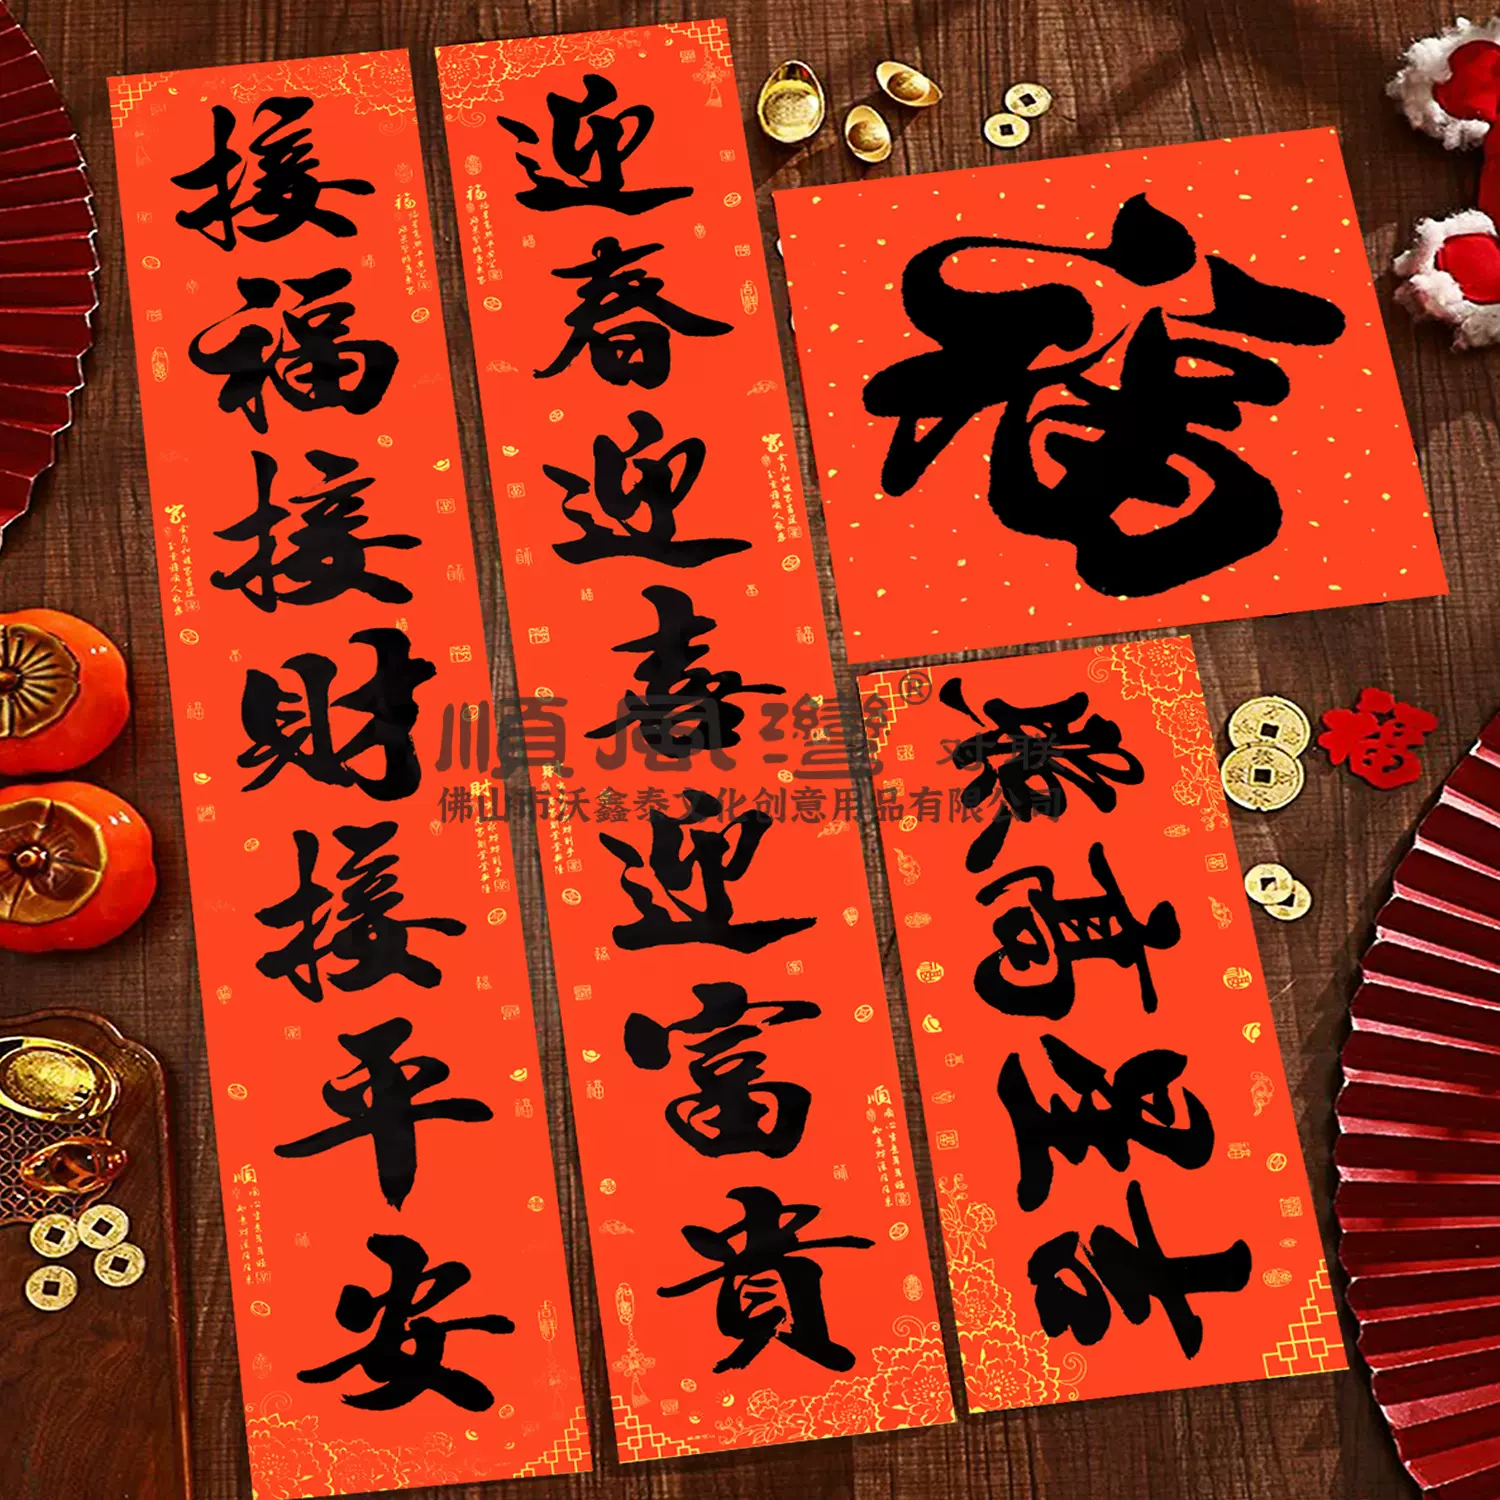 迎春迎喜迎富貴
接福接財接平安
吉星高照
福
順風灣® 对联
佛山市沃鑫泰文化创意用品有限公司